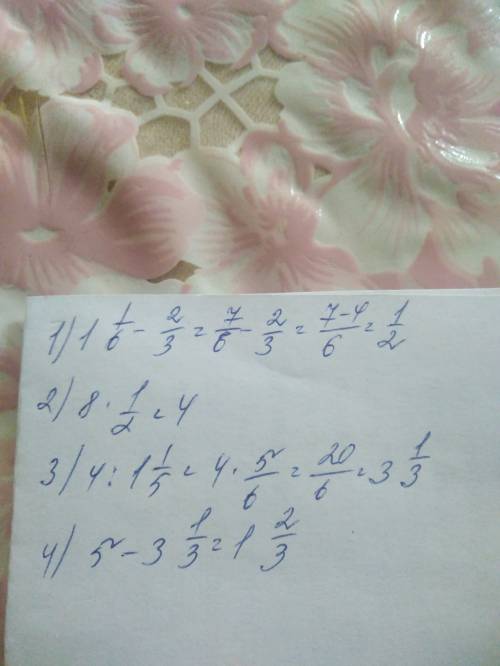 1) 1 1/6 - 2/3 = 7/6 - 2/3 = 7-4/6 = 1/2
2) 8 · 1/2 = 4
3) 4 : 1 1/5 = 4 · 5/6 = 20/6 = 3 1/3
4) 5 - 3 1/3 = 1 2/3